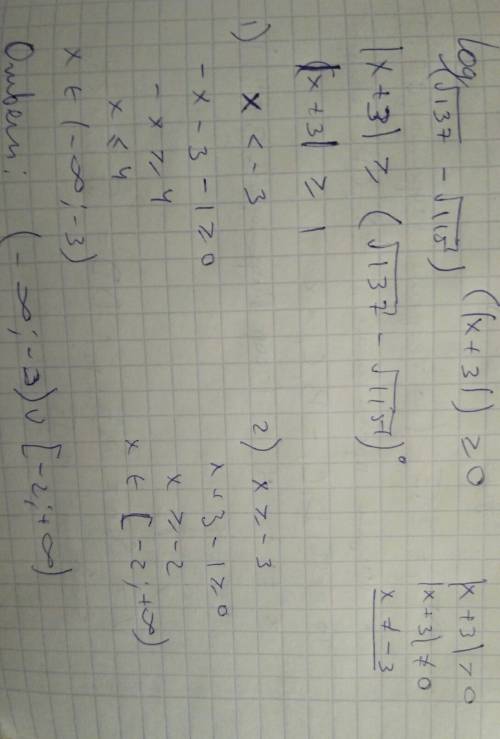 log(√137 - √115) (|x+3|) ≥ 0
|x+3| > 0
|x+3| ≠ 0
x ≠ -3
|x+3| ≥ (√137 - √115)⁰
|x+3| ≥ 1
1) x < -3
-x - 3 - 1 ≥ 0
-x ≥ 4
x ≤ 4
x ∈ (-∞; -3)
2) x ≥ -3
x + 3 - 1 ≥ 0
x ≥ -2
x ∈ [-2; +∞)
Ответ: (-∞; -3) ∪ [-2; +∞)